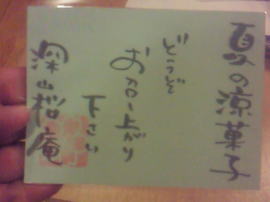 夏の涼菓子
どうぞ
お召し上がり
下さい
深山桜庵